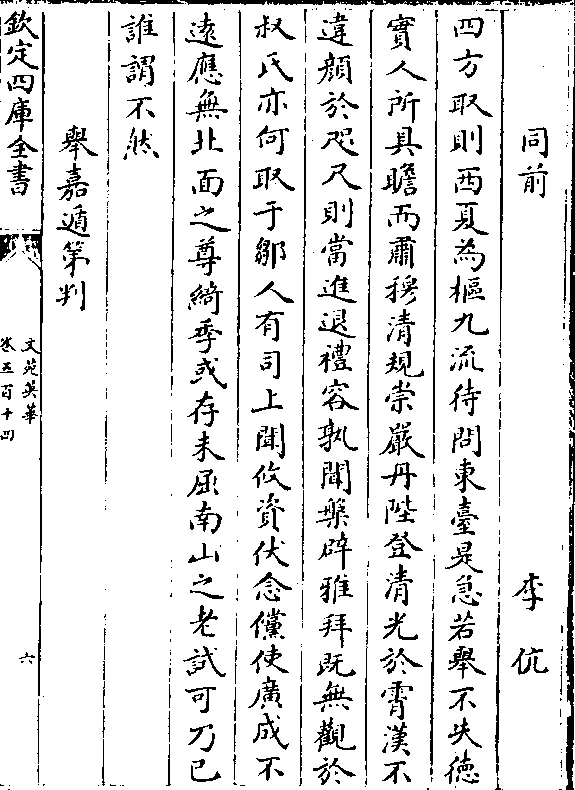 同前　李伉
四方取則西夏為樞九流待問東臺是急若舉不失德
實人所具瞻而肅穆清規崇嚴丹陛登清光於霄漢不
違顔於咫尺則當進退禮容孰聞槃辟雅拜既無觀於
叔氏亦何取于鄒人有司上聞攸資伏念儻使廣成不
逺應無北面之尊綺季或存未屈南山之老試可乃已
誰謂不然
舉嘉遁第判
欽定四庫全書
文苑英華
卷五百十四
六